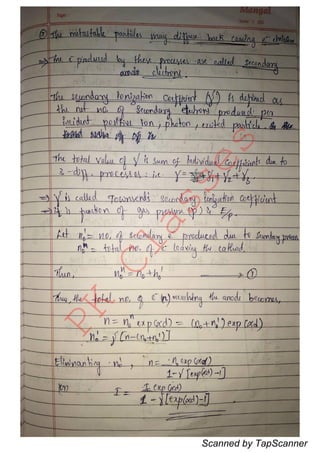 Mangal
Page
② The metastable particles may diffuse back causing e⁻ emission
⇒ The e⁻ produced by these processes are called secondary
electrons.
The secondary ionization coefficient (γ) is defined as
the net no. of secondary electrons produced per
incident positive ion, photon, excited particle
The total value of γ is sum of individual coefficients due to
3-diff. processes: i.e γ = γ₁ + γ₂ + γ₃.
⇒ γ is called Townsend's secondary ionization coefficient
⇒ it is function of gas pressure (p) & E/p.
Let n₀' = no. of secondary e⁻ produced due to secondary process
n₀" = total no. of e⁻ leaving the cathod.
Then, n₀" = n₀ + n₀' → ①
Thus, the total no. of e⁻ (n) reaching the anode becomes,
n = n₀" exp(αd) = (n₀ + n₀') exp(αd)
n₀' = γ [n-(n₀+n₀')]
Eliminating n₀', n = n₀ exp(αd) / 1-γ [exp(αd)-1]
for I = I₀ exp(αd) / 1-γ [exp(αd)-1]
PK Classes
Scanned by TapScanner